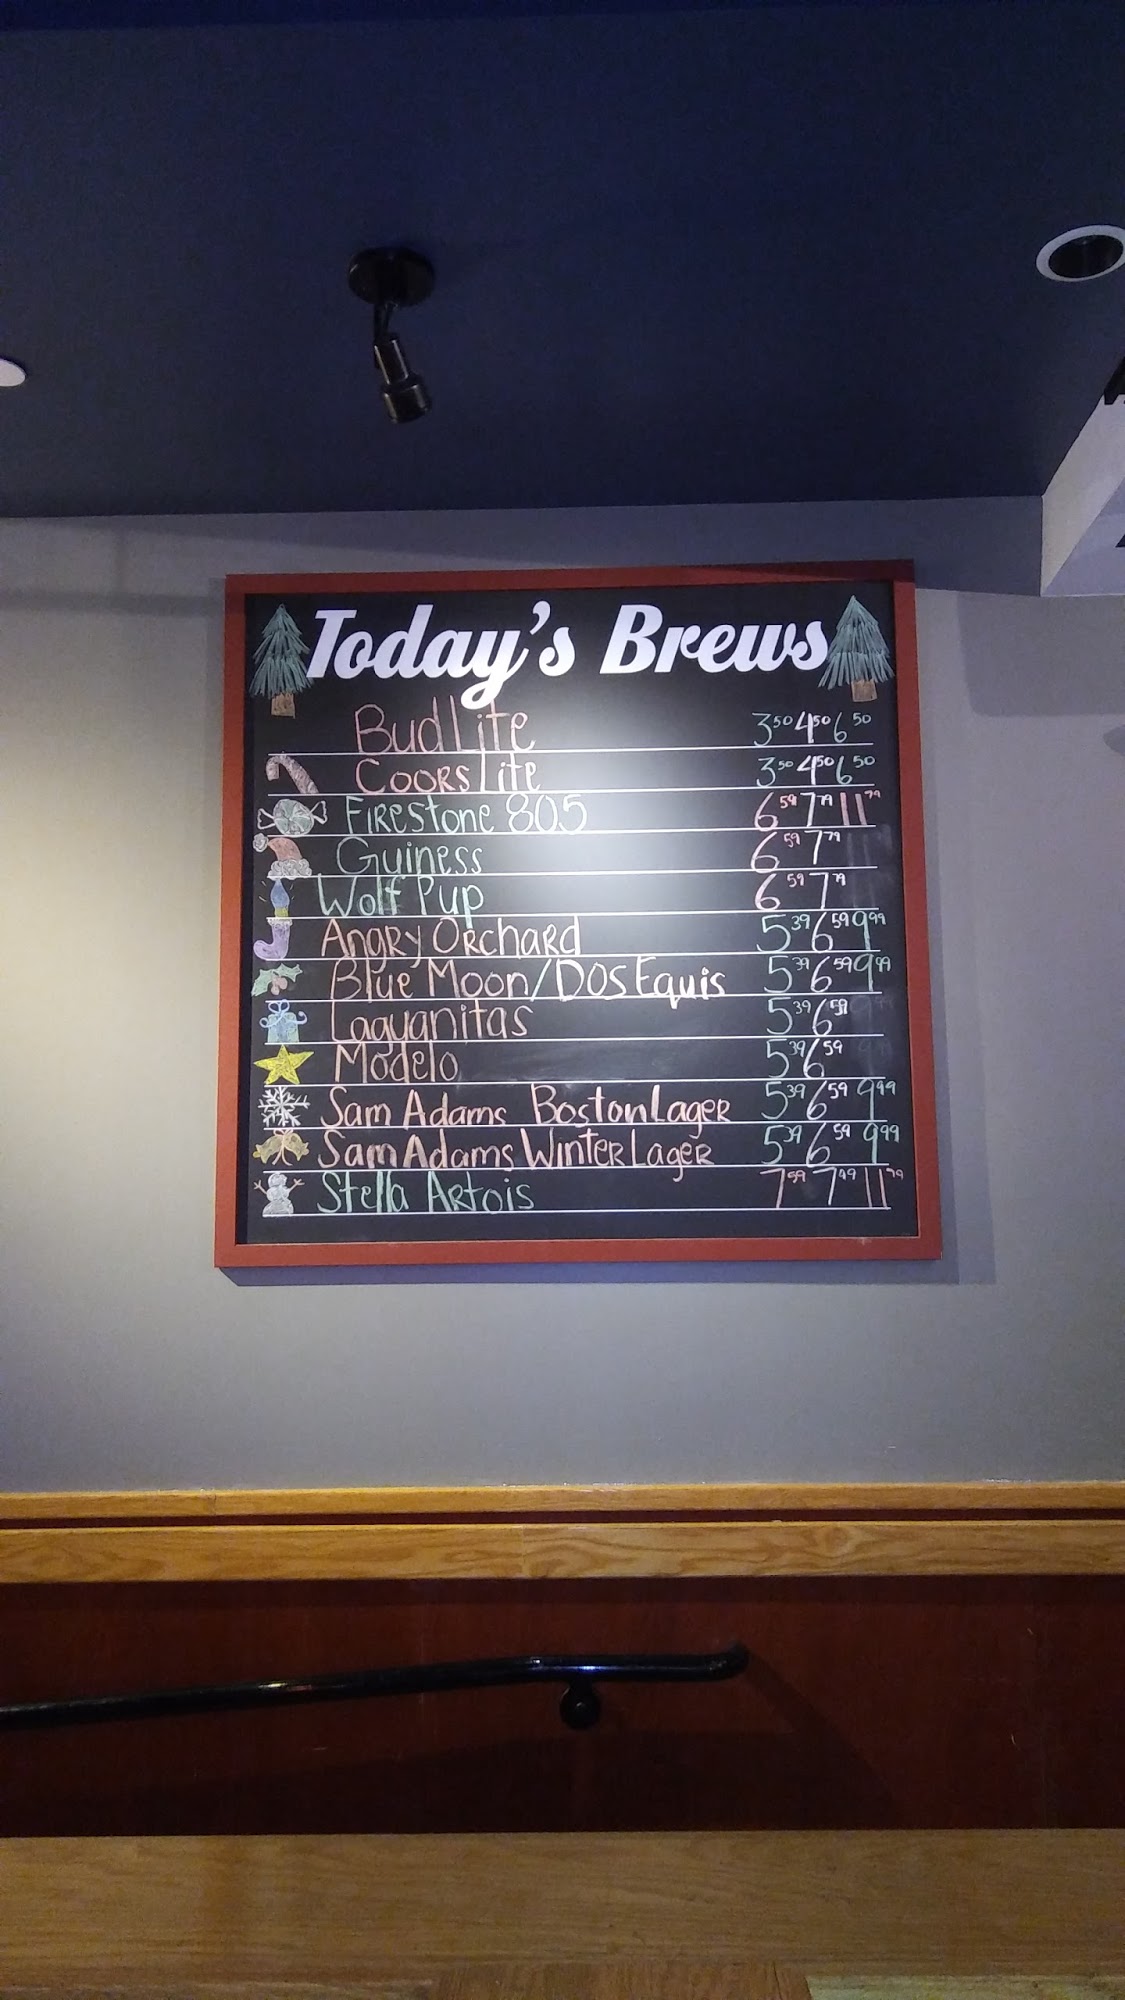 Today's Brews
Bud Lite 3.50 4.50 6.50
Coors Lite 3.50 4.50 6.50
Firestone 805 6.59 7.79 11.79
Guiness 6.59 7.79
Wolf Pup 6.59 7.79
Angry Orchard 5.39 6.59 9.99
Blue Moon/Dos Equis 5.39 6.59 9.99
Laguanitas 5.39 6.59
Modelo 5.39 6.59
Sam Adams Boston Lager 5.39 6.59 9.99
Sam Adams Winter Lager 5.39 6.59 9.99
Stella Artois 7.59 7.49 11.79